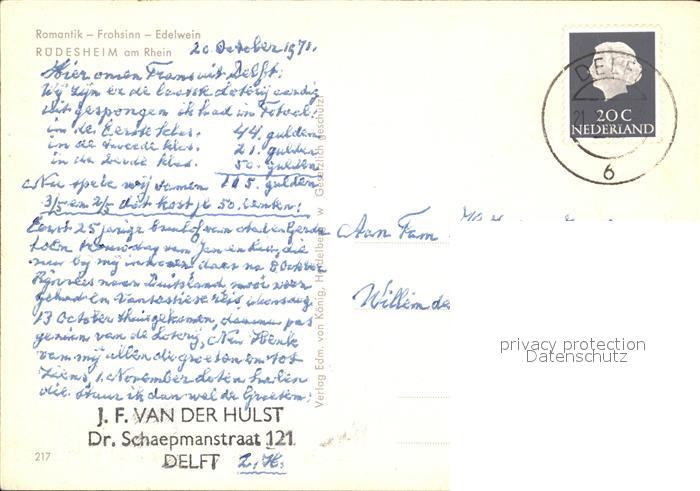 Romantik – Frohsinn – Edelwein
RÜDESHEIM am Rhein
20 October 1971.
Hier omen Frans uit Delft:
Wij zijn er de laatste loterij aardig
uit gesprongen ik had in Totaal
in de Eerste klas. 44 gulden
in de tweede klas. 21. gulden
in de derde klas. 50. gulden
Nu spele wij samen 115. gulden
3/5 em 2/5 dat kost je 50. centen!
Eerst 25 jarige bruiloft van
toen
van Jan en
die
bij mij
daar na 8 October
Rijnreis naar Duitsland mooi weer
gehad em Vantastiese reis dinsdag
13 October thuis gekomen, daarna pas
genieten van de Loterij, Nu Henk
van mij allen de groeten em tot
Ziens, 1. November
die stuur ik dan wel de Groeten.
J. F. VAN DER HULST
Dr. Schaepmanstraat 121
DELFT Z.H.
217
Verlag Edm. von König, Heidelberg w Gesetzlich geschützt
DELF
21
6
20 C
NEDERLAND
Aan Fam
Willem de
privacy protection
Datenschutz